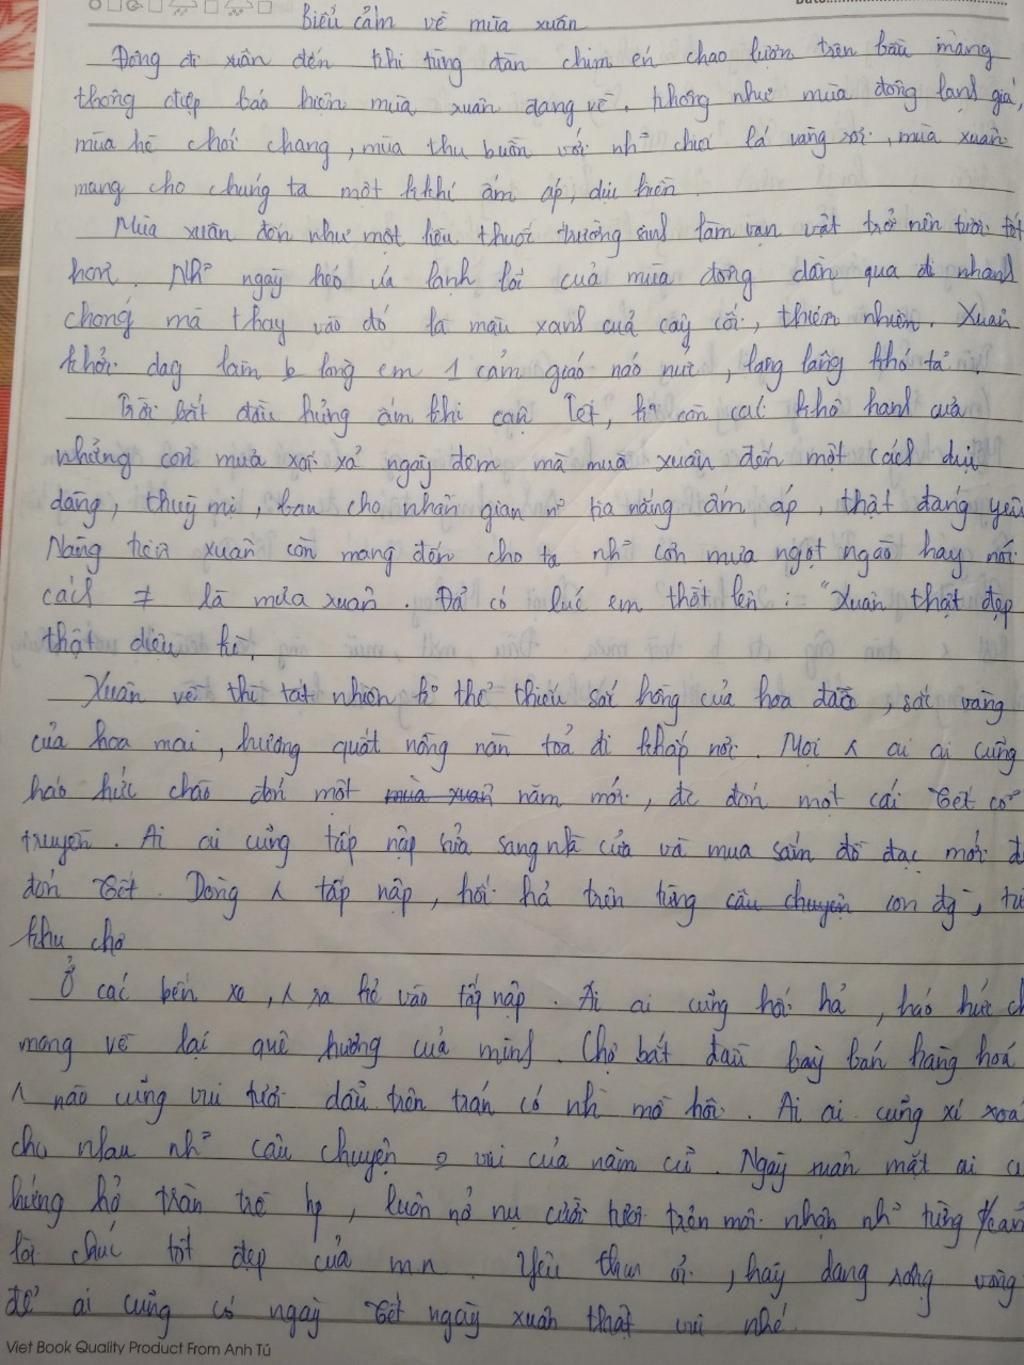 Date:
Biểu cảm về mùa xuân
Đông đi xuân đến khi từng đàn chim én chao lượn trên bầu mang
thông điệp báo hiện mùa xuân đang về. Không như mùa đông lạnh giá,
mùa hè chói chang, mùa thu buồn với nh~ chiếc lá vàng rơi, mùa xuân
mang cho chúng ta một kkhí ấm áp, dịu hiền.
Mùa xuân đến như một liều thuốc trường sinh làm vạn vật trở nên tươi tốt
hơn. Nh~ ngày héo úa lạnh lẽo của mùa đông dần qua đi nhanh
chóng mà thay vào đó là màu xanh của cây cối, thiên nhiên. Xuân
khơi dạy tâm lòng em 1 cảm giác náo nức, lang lâng khó tả.
Trời bắt đầu hửng ấm khi cận Tết, ko còn cái khô hanh của
những cơn mưa xối xả ngày đêm mà mùa xuân đến một cách dịu
dàng, thuỳ mị, ban cho nhân gian n~ tia nắng ấm áp, thật đáng yêu
Nàng tiên xuân còn mang đến cho ta nh~ cơn mưa ngọt ngào hay nói
cách ≠ là mưa xuân. Đã có lúc em thốt lên: "Xuân thật đẹp
thật diệu kì.
Xuân về thì tất nhiên ko thể thiếu sắc hồng của hoa đào, sắc vàng
của hoa mai, hương quất nồng nàn toả đi khắp nơi. Mọi ʌ ai ai cũng
háo hức chào đón một mùa xuân năm mới, để đón một cái Tết cổ
truyền. Ai ai cũng tấp nập sửa sang nhà cửa và mua sắm đồ đạc mới để
đón Tết. Dòng ʌ tấp nập, hối hả trên từng câu chuyện con đg,
khu chợ
Ở các bến xe, ʌ ra kẻ vào tấp nập. Ai ai cũng hối hả, háo hức
mong về lại quê hương của mình. Chợ bắt đầu bày bán hàng hoá
ʌ nào cũng vui tươi dẫu trên trán có nh~ mồ hôi. Ai ai cũng xí xoá
cho nhau nh~ câu chuyện vui của năm cũ. Ngày xuân mặt ai
hứng hở tràn trề hp, luôn nở nụ cười tươi trên môi nhận nh~ từng
lời chúc tốt đẹp của m.n. Yêu thw ơi, hãy dang rộng vòng
để ai cũng có ngày Tết ngày xuân thật vui nhé.
Viet Book Quality Product From Anh Tú